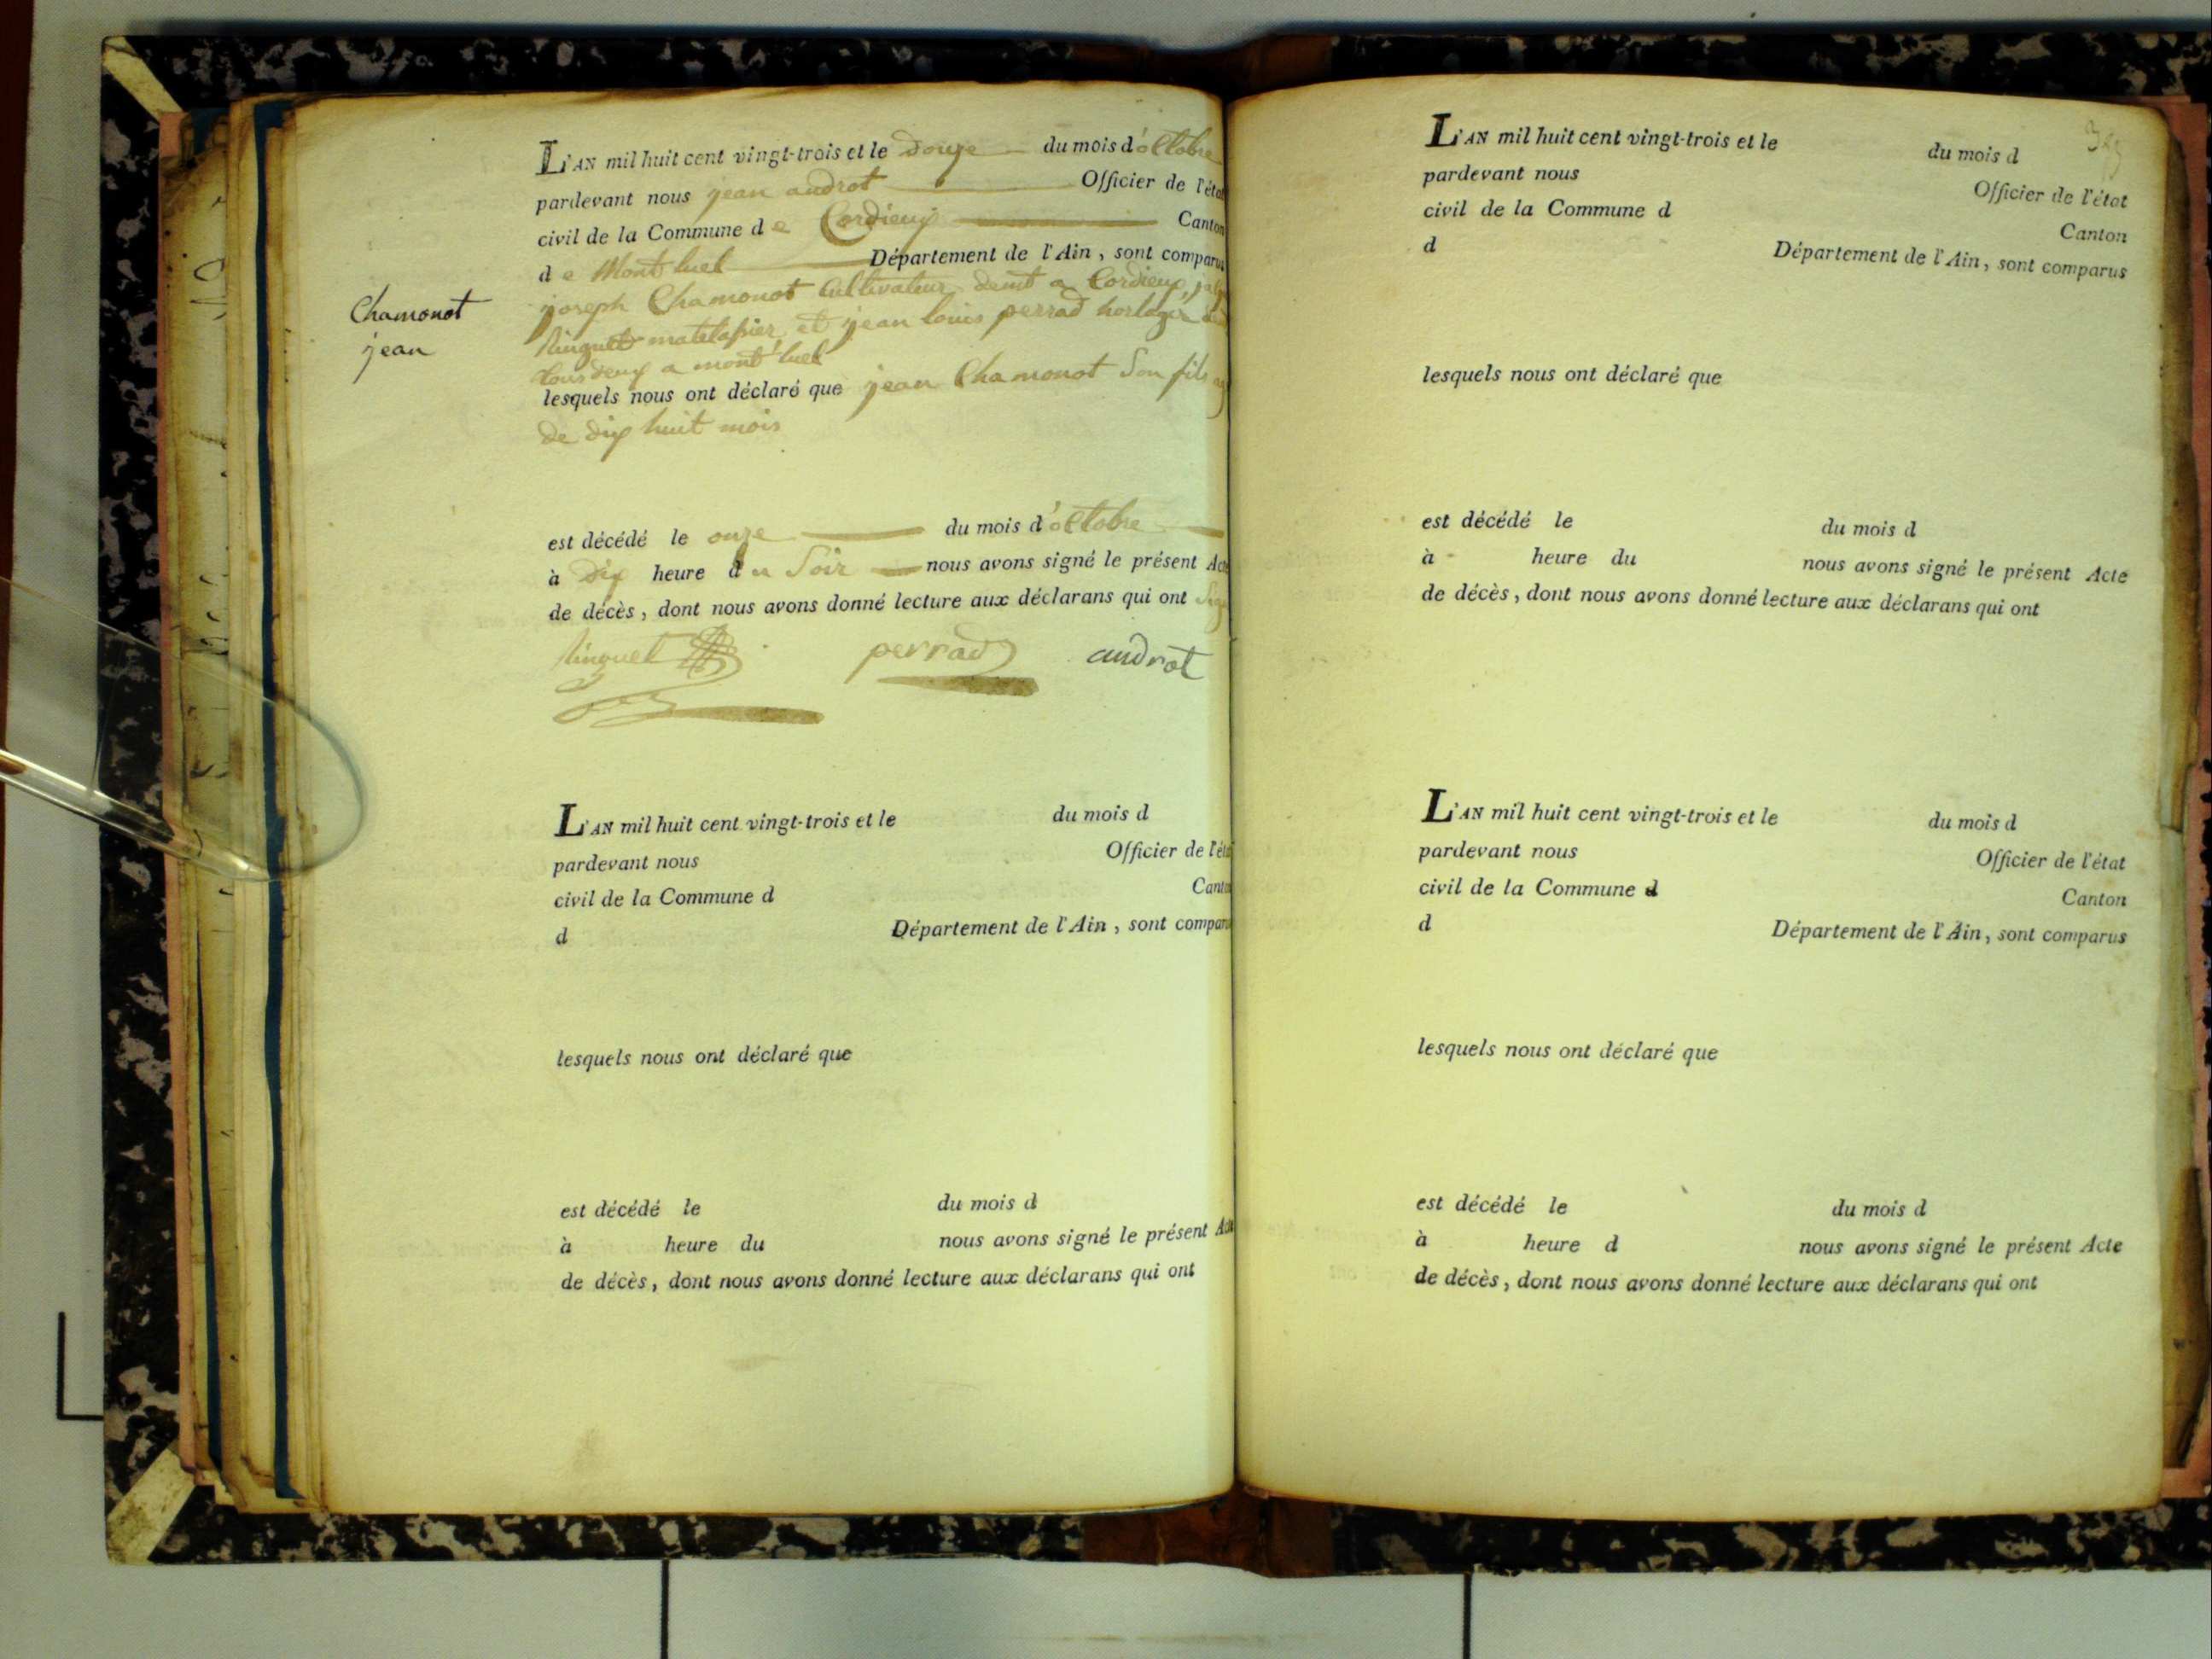 L'AN mil huit cent vingt-trois et le douze du mois d'octobre
pardevant nous jean androt Officier de l'état
civil de la Commune de Cordieux Canton
de Montluel Département de l'Ain, sont comparus
joseph Chamonot Cultivateur demt a Cordieux,
matelassier et jean louis perrad horloger
tous deux a montluel
Chamonot
jean
lesquels nous ont déclaré que jean Chamonot Son fils
de dix huit mois
est décédé le onze du mois d'octobre
à dix heure du Soir nous avons signé le présent Acte
de décès, dont nous avons donné lecture aux déclarans qui ont
perrad androt
L'AN mil huit cent vingt-trois et le du mois d
pardevant nous Officier de l'état
civil de la Commune d Canton
d Département de l'Ain, sont comparus
lesquels nous ont déclaré que
est décédé le du mois d
à heure du nous avons signé le présent Acte
de décès, dont nous avons donné lecture aux déclarans qui ont
L'AN mil huit cent vingt-trois et le du mois d
pardevant nous Officier de l'état
civil de la Commune d Canton
d Département de l'Ain, sont comparus
lesquels nous ont déclaré que
est décédé le du mois d
à heure du nous avons signé le présent Acte
de décès, dont nous avons donné lecture aux déclarans qui ont
L'AN mil huit cent vingt-trois et le du mois d
pardevant nous Officier de l'état
civil de la Commune d Canton
d Département de l'Ain, sont comparus
lesquels nous ont déclaré que
est décédé le du mois d
à heure d nous avons signé le présent Acte
de décès, dont nous avons donné lecture aux déclarans qui ont